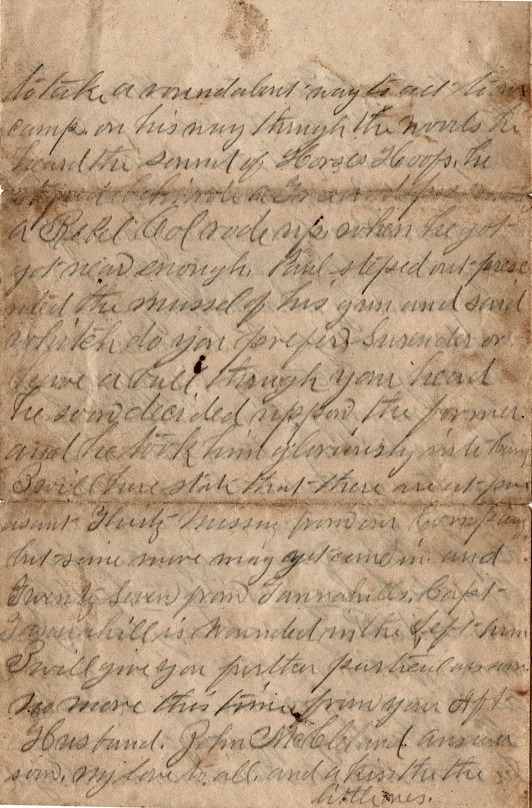 to take a roundabout way to get to our
camp. on his way through the woods he
heard the sound of Horses Hoofs. he
behind a Tree
a Rebel Col rode up. when he got
got near enough. Paul steped out prese
nted the mussel of his gun and said
whitch do you prefer Surender or
have a ball through you head
he soon decided uppon the former
and he took him gloriously into Camp
I will here state that there are at pre
asent Thirty missing from our Company
but some more may yet come in. and
Twenty Seven from Tannahills. Capt
Tannahill is wounded in the left arm
I will give you further particulars soon
no more this time from your Aft
Husband. John McCleland. answer
soon. my love to all. and a kiss the the
little ones.